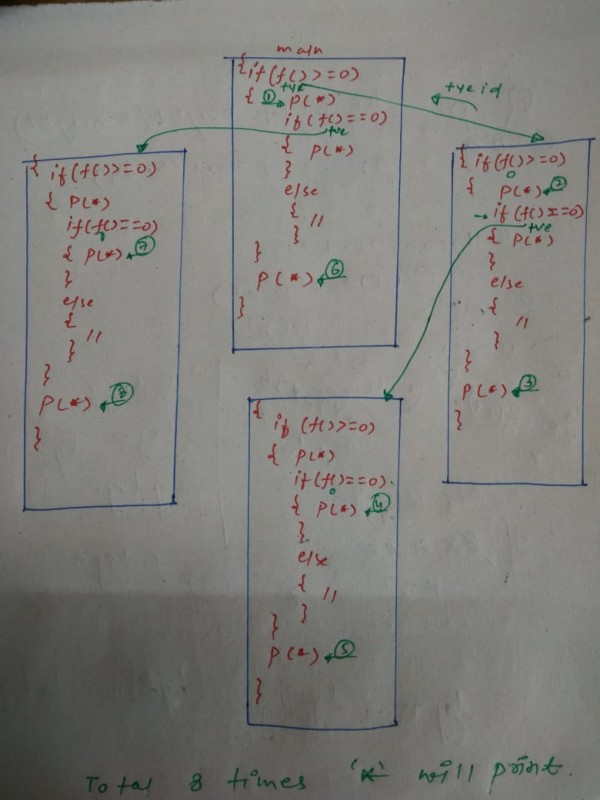 main
{if(f()>=0)
+ve
{ ① P(*)
if(f()==0)
+ve
{ P(*)
}
else
{
//
}
}
P(*) ⑥
}
+ve id
{ if(f()>=0)
{ P(*)
if(f()==0)
0
{ P(*) ⑦
}
else
{
//
}
}
P(*) ⑧
}
{ if(f()>=0)
0
{ P(*) ②
if(f()==0)
+ve
{ P(*)
}
else
{
//
}
}
P(*) ③
}
{
if (f()>=0)
{ P(*)
if(f()==0)
0
{ P(*) ④
}
else
{
//
}
}
P(*) ⑤
}
Total 8 times '*' will print.